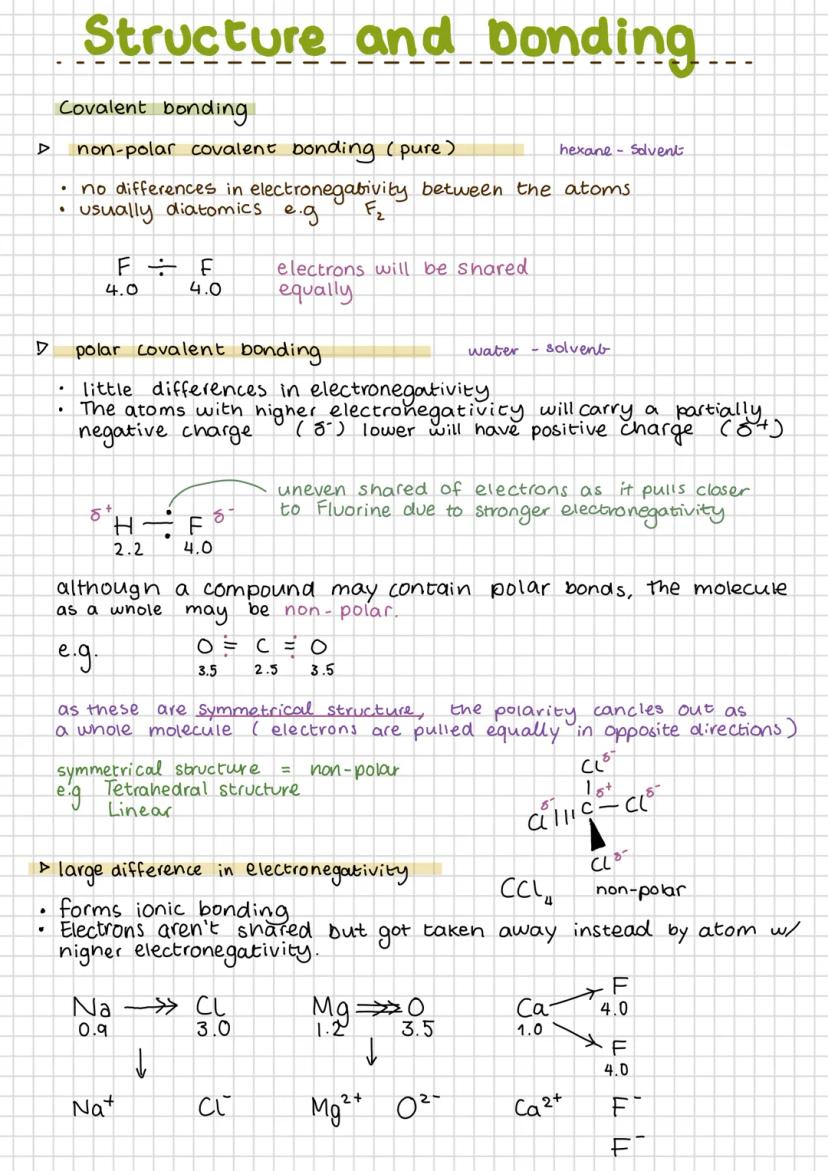 Structure and bonding
Covalent bonding
▷ non-polar covalent bonding (pure) hexane - solvent
• no differences in electronegativity between the atoms
• usually diatomics e.g F₂
F ÷ F electrons will be shared
4.0 4.0 equally
▷ polar covalent bonding water - solvent
• little differences in electronegativity
• The atoms with higher electronegativity will carry a partially
negative charge (δ⁻) lower will have positive charge (δ⁺)
uneven shared of electrons as it pulls closer
δ⁺ H ÷ F δ⁻ to Fluorine due to stronger electronegativity
2.2 4.0
although a compound may contain polar bonds, the molecule
as a whole may be non-polar.
e.g. O = C = O
3.5 2.5 3.5
as these are symmetrical structure, the polarity cancles out as
a whole molecule (electrons are pulled equally in opposite directions)
symmetrical structure = non-polar
e.g Tetrahedral structure
Linear
Cl δ⁻
δ⁻ Cl C δ⁺ — Cl δ⁻
Cl δ⁻
CCl₄ non-polar
▷ large difference in electronegativity
• forms ionic bonding
• Electrons aren't shared but got taken away instead by atom w/
higher electronegativity.
Na →> Cl Mg ⇒> O Ca F
0.9 3.0 1.2 3.5 1.0 4.0
↓ ↓ F
4.0
Na⁺ Cl⁻ Mg²⁺ O²⁻ Ca²⁺ F⁻
F⁻